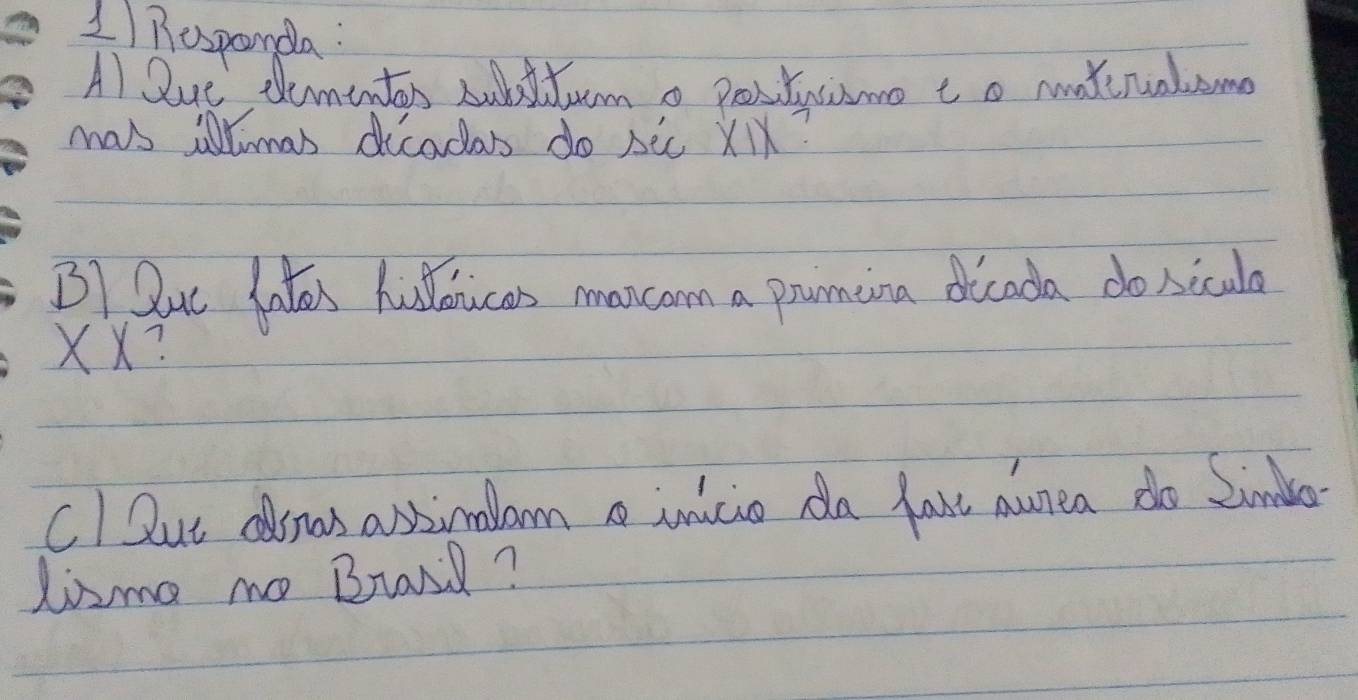 1) Responda:
A) Que elementos substituem o positivismo e o materialismo
nas últimas décadas do séc XIX?
B) Que fatos históricos marcam a primeira década do século
XX?
C) Que obras assinalam o início da fase áurea do Simbo-
lismo no Brasil?